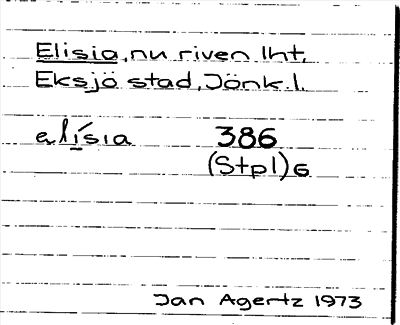 Elisia, nu riven lht,
Eksjö stad, Jönk. l.
elísia 386
(Stpl) G
Jan Agertz 1973